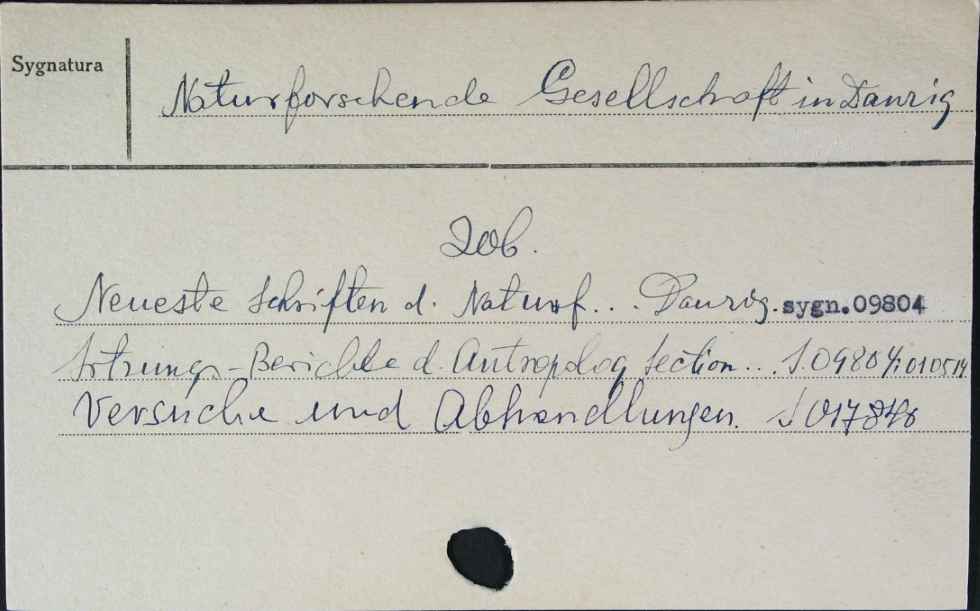 Sygnatura
Naturforschende Gesellschaft in Danzig
Zob.
Neueste Schriften d. Naturf... Danzig. sygn.09804
Sitzungs-Berichte d. Antropolog Section... S. 09804; 010514
Versuche und Abhandlungen. S 017846